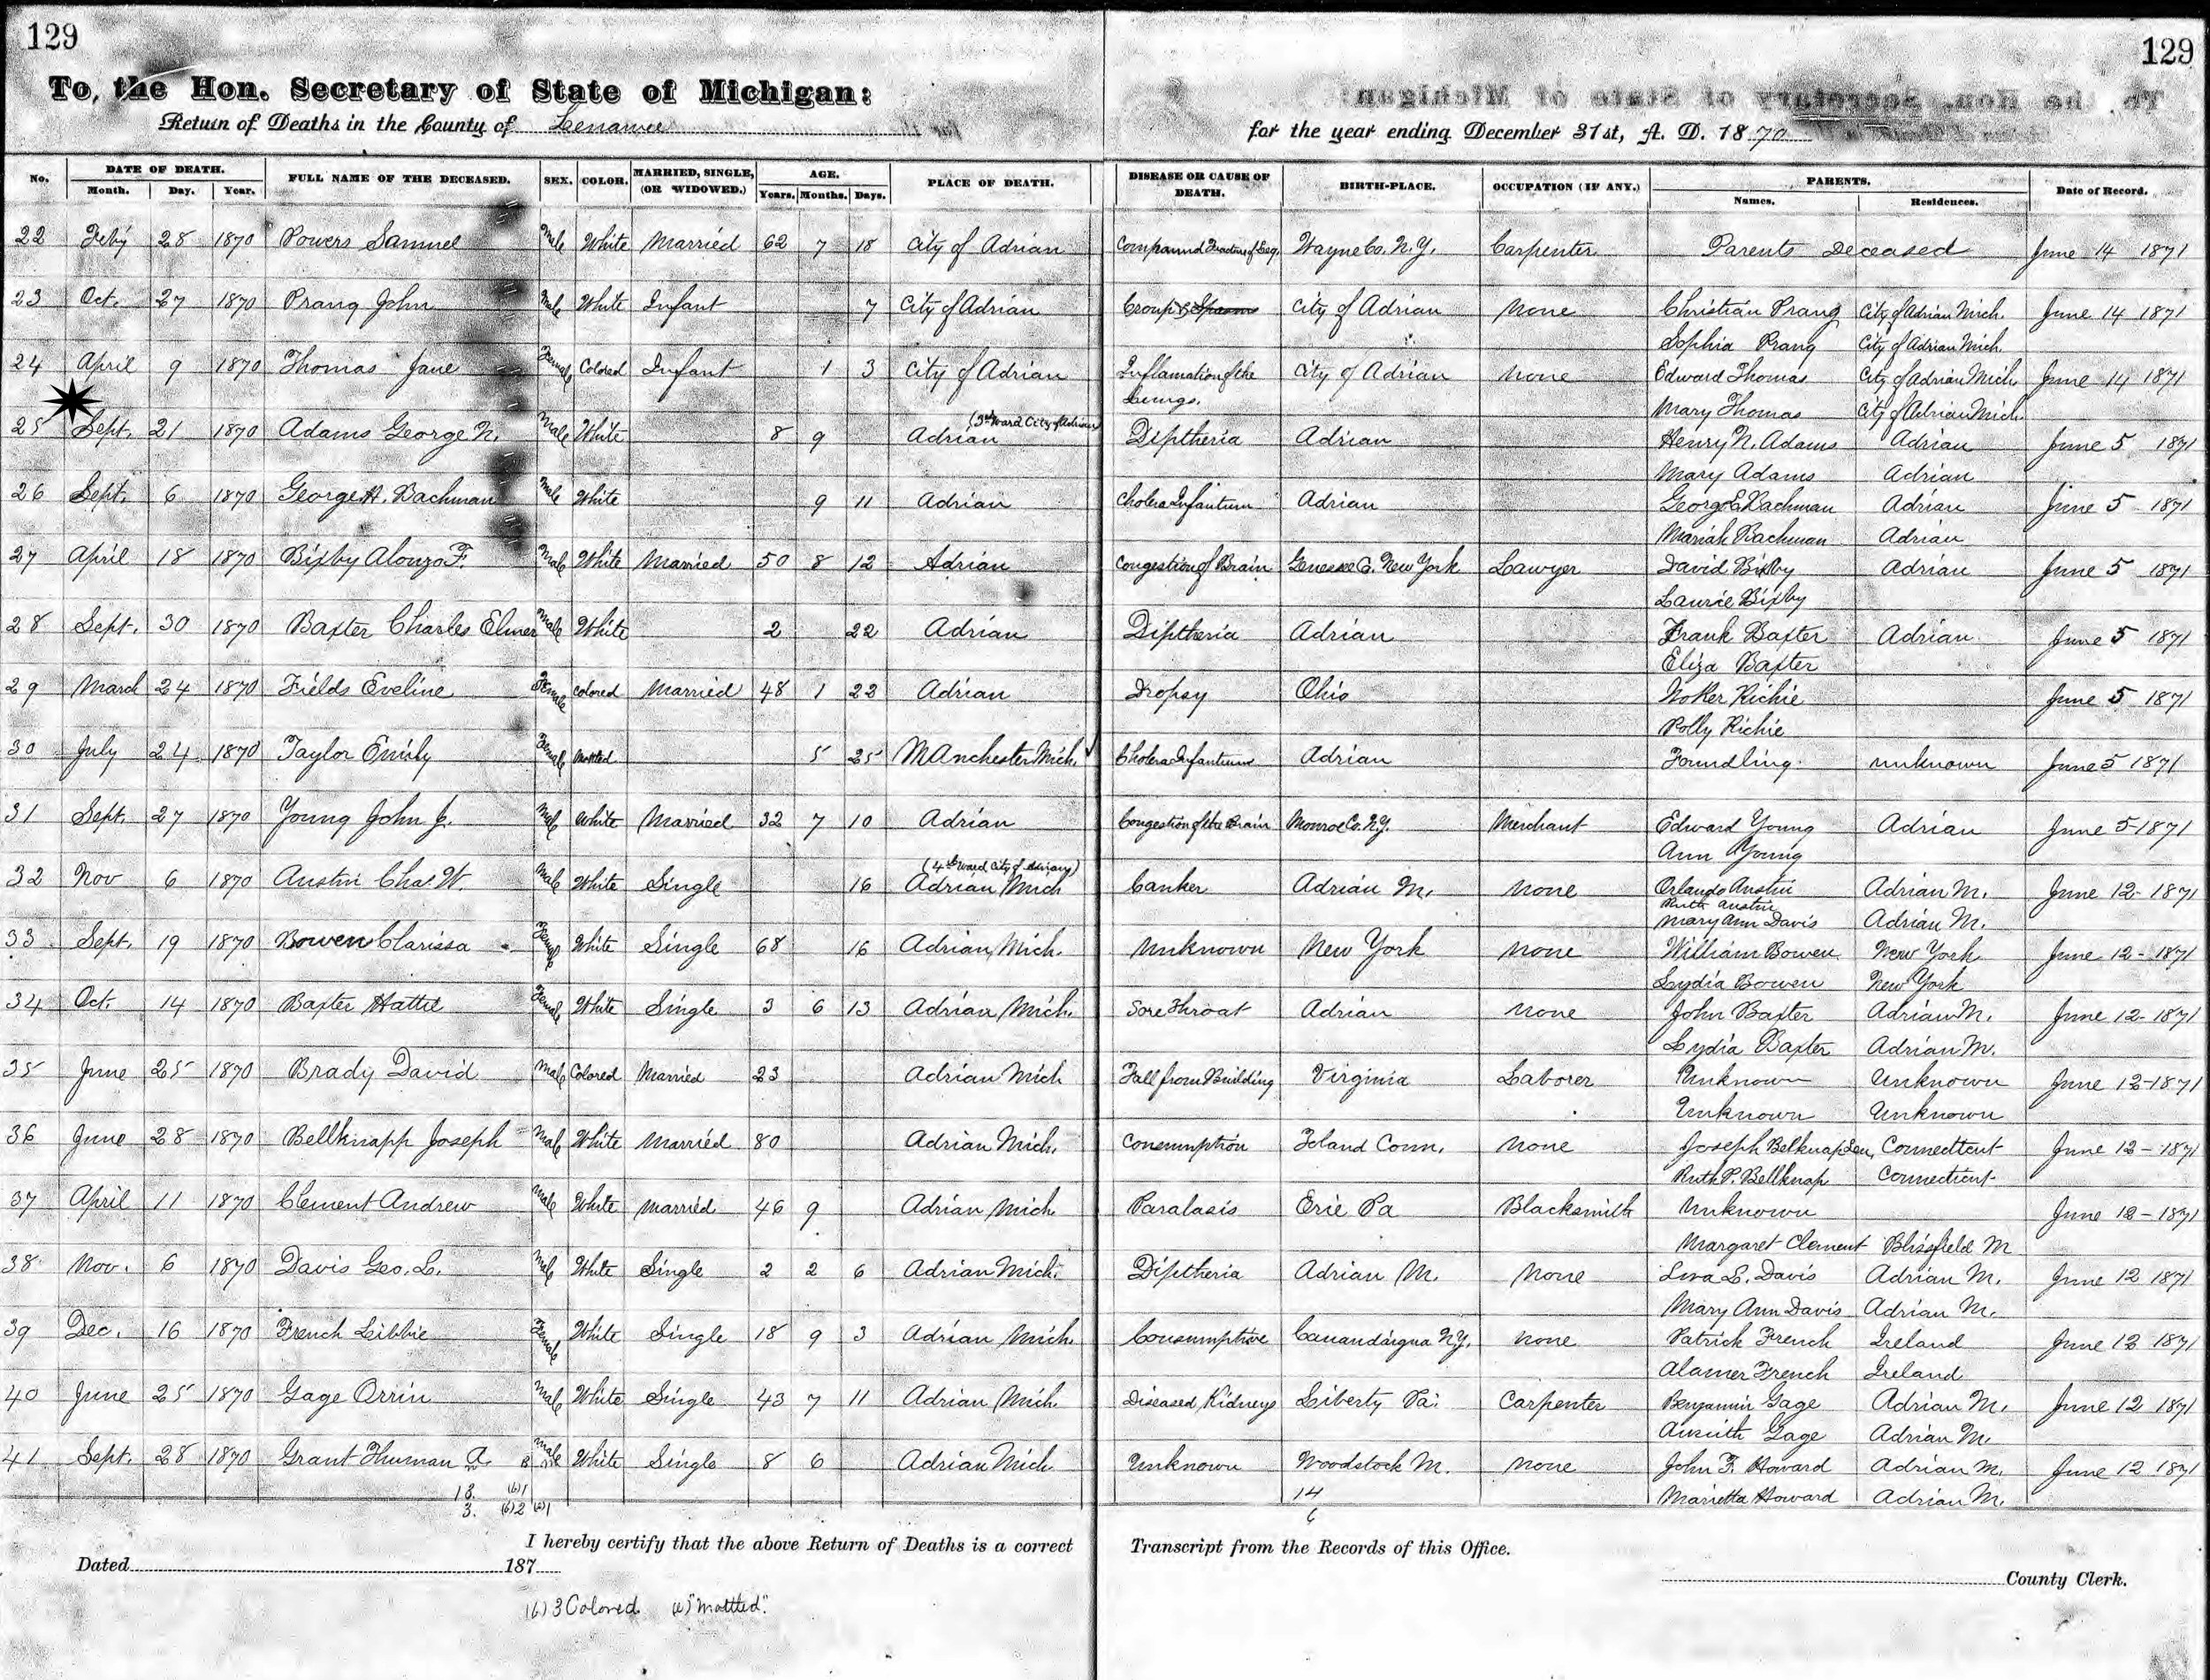 129 129
To, the Hon. Secretary of State of Michigan:
Return of Deaths in the County of Lenawee for the year ending December 31st, A. D. 1870
No. DATE OF DEATH. FULL NAME OF THE DECEASED. SEX. COLOR. MARRIED, SINGLE, (OR WIDOWED.) AGE. PLACE OF DEATH. DISEASE OR CAUSE OF DEATH. BIRTH-PLACE. OCCUPATION (IF ANY.) PARENTS. Date of Record.
Month. Day. Year. Years. Months. Days. Names. Residences.
22 Feby 28 1870 Powers Samuel Male White Married 62 7 18 City of Adrian Compound Fracture of Leg. Wayne Co. N.Y. Carpenter Parents Deceased June 14 1871
23 Oct. 27 1870 Prang John Male White Infant 7 City of Adrian Croup & Spasms City of Adrian None Christian Prang City of Adrian Mich. June 14 1871
Sophia Prang City of Adrian Mich.
24 April 9 1870 Thomas Jane Female Colored Infant 1 3 City of Adrian Inflamation of the City of Adrian None Edward Thomas City of Adrian Mich. June 14 1871
Lungs. Mary Thomas City of Adrian Mich.
(3rd Ward City of Adrian
25 Sept. 21 1870 Adams George N. Male White 8 9 Adrian Diptheria Adrian Henry N. Adams Adrian June 5 1871
Mary Adams Adrian
26 Sept. 6 1870 George A. Bachman Male White 9 11 Adrian Cholera Infantum Adrian George E Bachman Adrian June 5 1871
Mariah Bachman Adrian
27 April 18 1870 Bixby Alonzo F. Male White Married 50 8 12 Adrian Congestion of Brain Genesee Co. New York Lawyer David Bixby Adrian June 5 1871
Laurie Bixby
28 Sept. 30 1870 Baxter Charles Elmer Male White 2 22 Adrian Diptheria Adrian Frank Baxter Adrian June 5 1871
Eliza Baxter
29 March 24 1870 Fields Eveline Female Colored Married 48 1 22 Adrian Dropsy Ohio Richie June 5 1871
Polly Richie
30 July 24 1870 Taylor Emily Female Mottled 5 25 MAnchester Mich. Cholera Infantum Adrian Foundling unknown June 5 1871
31 Sept. 27 1870 Young John J. Male White Married 32 7 10 Adrian Congestion of the Brain Monroe Co. N.Y. Merchant Edward Young Adrian June 5-1871
Ann Young
(4th Ward City of Adrian)
32 Nov 6 1870 Austin Chas. W. Male White Single 16 Adrian Mich Canker Adrian M. None Orlando Austin Adrian M. June 12-1871
Ruth Austin
Mary Ann Davis Adrian M.
33 Sept. 19 1870 Bowen Clarissa Female White Single 68 16 Adrian, Mich. Unknown New York None William Bowen New York June 12-1871
Lydia Bowen New York
34 Oct. 14 1870 Baxter Hattie Female White Single 3 6 13 Adrian Mich. Sore Throat Adrian None John Baxter Adrian M. June 12-1871
Lydia Baxter Adrian M.
35 June 25 1870 Brady David Male Colored Married 23 Adrian Mich Fall from Building Virginia Laborer Unknown Unknown June 12-1871
Unknown Unknown
36 June 28 1870 Bellknapp Joseph Male White Married 80 Adrian Mich. Conemmption Toland Conn. None Joseph Belknap Sen, Connecttcut June 12-1871
Ruth P. Bellknap Connecticut
37 April 11 1870 Clement Andrew Male White Married 46 9 Adrian Mich. Paralasis Erie Pa Blacksmith Unknown June 12-1871
Margaret Clement Blissfield M
38 Nov. 6 1870 Davis Geo. L. Male White Single 2 2 6 Adrian Mich. Diptheria Adrian M. None L. Davis Adrian M. June 12 1871
Mary Ann Davis Adrian M.
39 Dec. 16 1870 French Libbie Female White Single 18 9 3 Adrian Mich. Consumptive Canandaigua N.Y. None Patrick French Ireland June 12 1871
Alamer French Ireland
40 June 25 1870 Gage Orrin Male White Single 43 7 11 Adrian Mich. Diseased Kidneys Liberty Pa. Carpenter Benjamin Gage Adrian M. June 12 1871
Gage Adrian M.
41 Sept. 28 1870 Grant Thuman A. Male White Single 8 6 Adrian Mich Unknown Woodstock M. None John F. Howard Adrian M. June 12 1871
18. (6)1 14 Marietta Howard Adrian M.
3. (6)2 (a)1 6
I hereby certify that the above Return of Deaths is a correct Transcript from the Records of this Office.
Dated 187 County Clerk.
(b) 3 Colored (a) "Mottled".